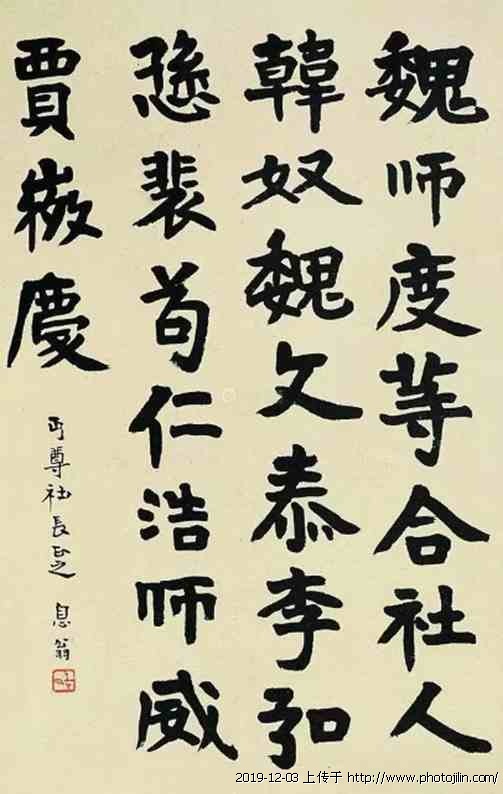 魏师度等合社人
韓奴魏文泰李弘
愻裴苟仁浩师威
賈㣲慶
丏尊社長正之 息翁
2019-12-03 上传于 http://www.photojilin.com